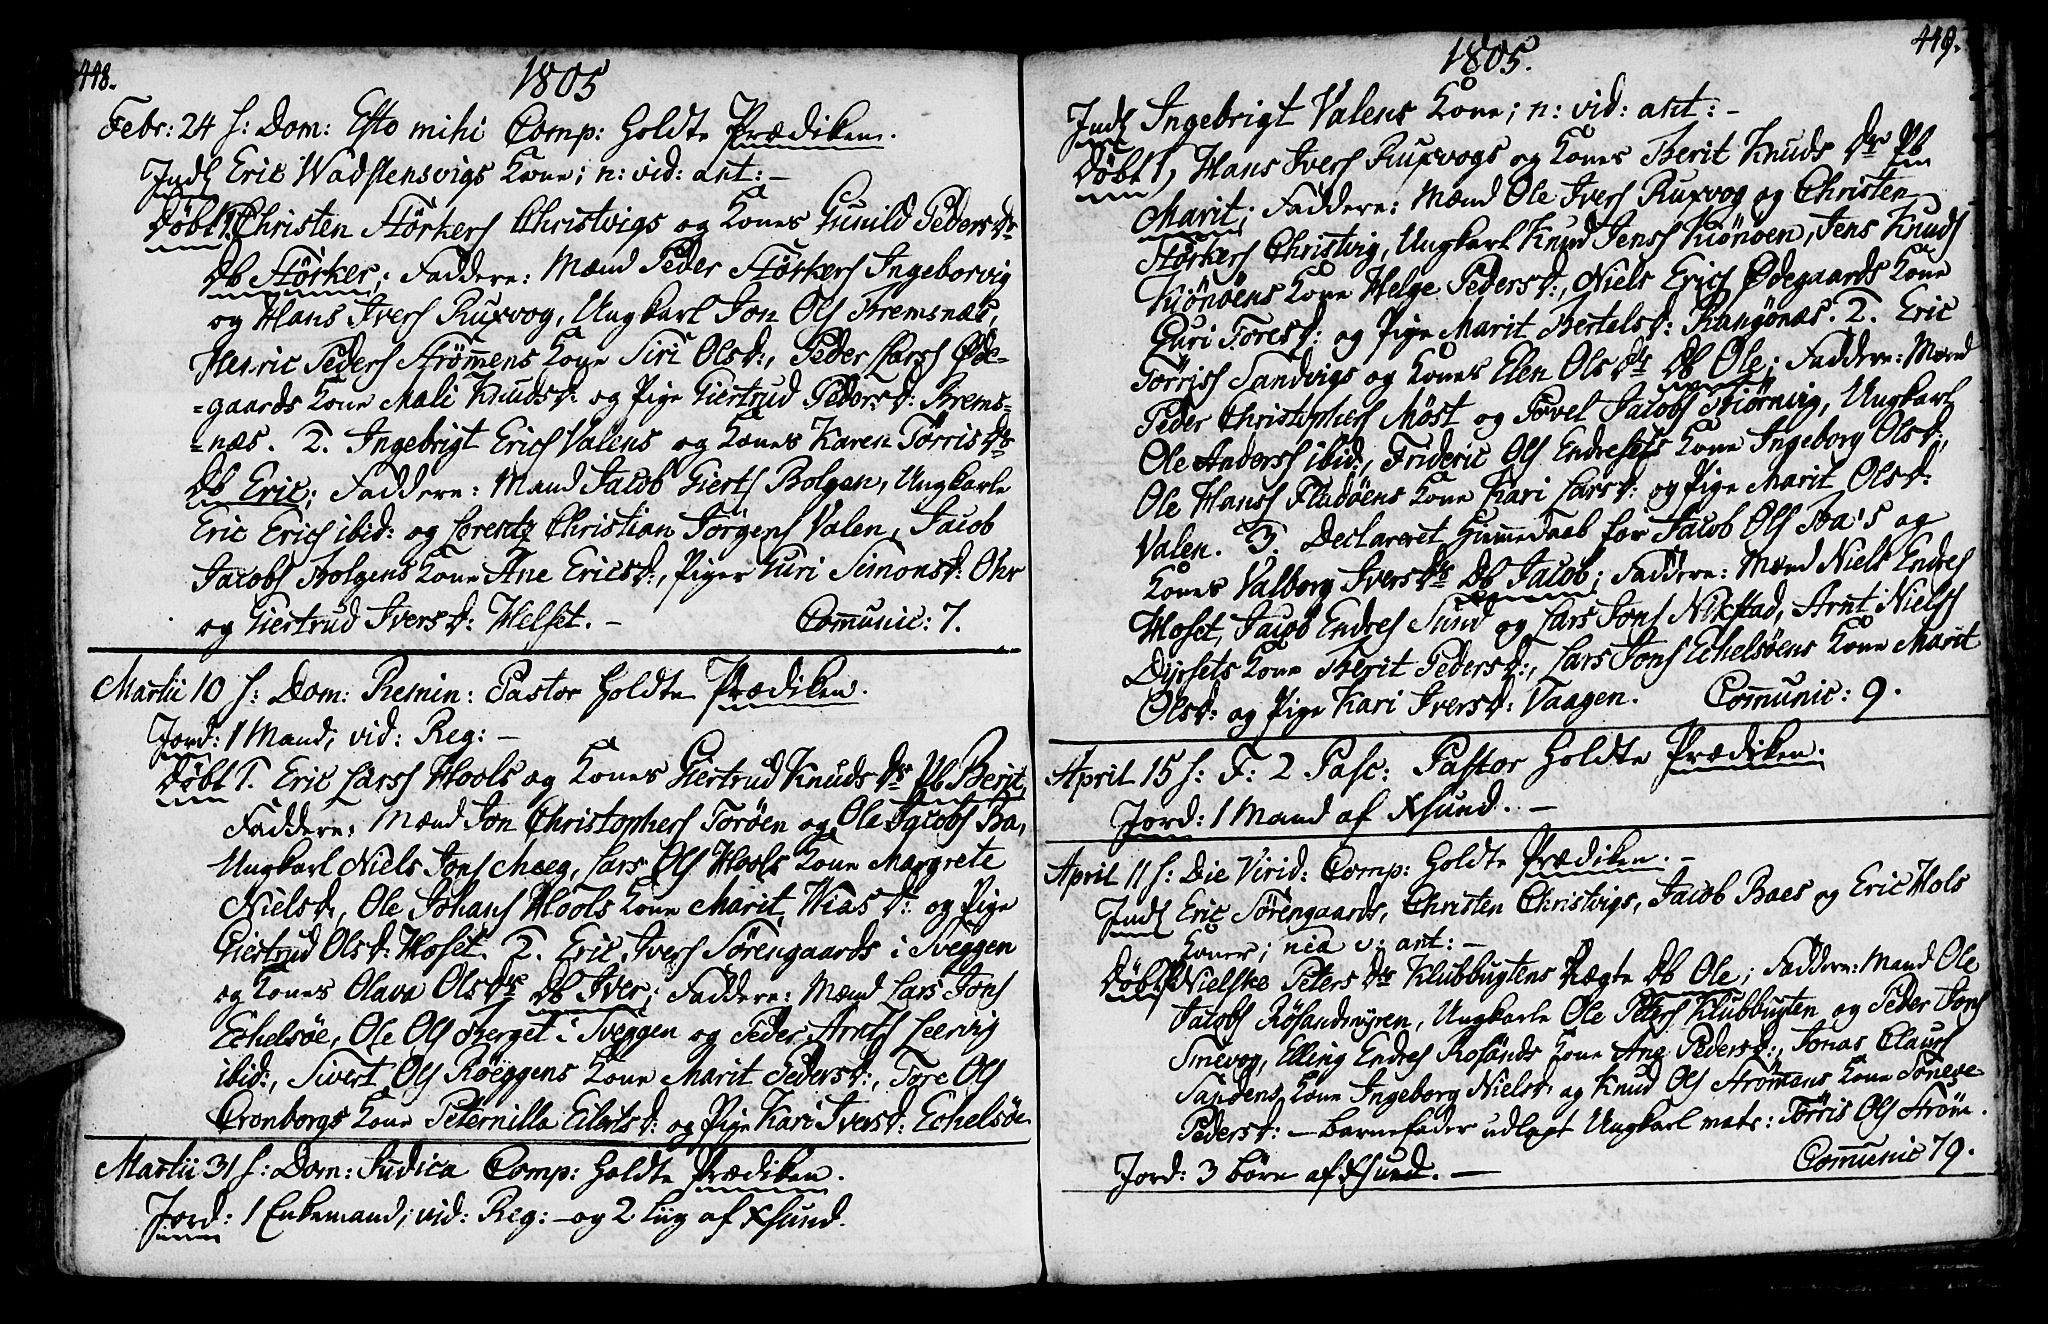 448.
1805
Febr: 24 h: Dom: Esto mihi Comp: holdte Prædiken.
Indl Eric Wadstensvigs Kone; n: vid: ant: -
Døbt 1. Christen Størkers Christvigs og Kones Gunild Peders Drs
Db Størker; Faddere: Mænd Peder Størkers Ingeborvig
og Hans Ivers Ruxvog, Ungkarl Jon Ols Bremsnæs,
Henric Peders Strømens Kone Siri Olsd:, Peder Lars Øde-
=gaards Kone Mali Knudsd: og Pige Giertrud Pedersd: Brems=
=næs. 2. Ingebrigt Erics Valens og Kones Karen Tørris Drs
Db Eric; Faddere: Mænd Jacob Gierts Bolgen, Ungkarle
Eric Erics ibid: og Lorentz Christian Jørgens Valen, Jacob
Jacobs Bolgens Kone Ane Ericsd:, Piger Guri Simonsd: Ohr
og Giertrud Iversd: Helset. - Comunic: 7.
Martii 10 h: Dom: Remin: Pastor holdte Prædiken.
Jord: 1 Mand, vid: Reg: -
Døbt 1. Eric Larss Hools og Kones Giertrud Knuds Drs Pb Berit,
Faddere: Mænd Jon Christophers Torøen og Ole Jacobs Ba,
Ungkarl Niels Jons Moeg, Lars Ols Hools Kone Margrete
Nielsd:, Ole Johans Hools Kone Marit Niasd: og Pige
Giertrud Olsd: Hoset. 2. Eric Ivers Sørengaards i Sveggen
og Kones Olava Ols Drs Db Iver; Faddere: Mænd Lars Jons
Echelsøe, Ole Ols Berget i Sveggen og Peder Arnts Leervig
ibid:, Sivert Ols Røeggens Kone Marit Pedersd:, Tore Ols
Cronborgs Kone Peternilla Eilertsd: og Pige Kari Iversd: Echelsøe
Martii 31 h: Dom: Judica Comp: holdte Prædiken.
Jord: 1 Enkemand; vid: Reg: - og 2 Liig af Xsund.
449.
1805.
Indl Ingebrigt Valens Kone; n: vid: ant: -
Døbt 1, Hans Ivers Ruxvogs og Kones Berit Knuds Drs Pb
Marit; Faddere: Mænd Ole Ivers Ruxvog og Christen
Størkers Christvig, Ungkarl Knud Jens Kiønøen, Jens Knuds
Kiønøens Kone Helge Pedersd:, Niels Erics Ødegaards Kone
Guri Toresd: og Pige Marit Bertelsd: Rangønæs. 2. Eric
Tørriss Sandvigs og Kones Elen Ols Drs Db Ole; Faddere: Mænd
Peder Christophers Møst og Povel Jacobs Biørnvig, Ungkarl
Ole Anderss ibid:, Frideric Ols Endresets Kone Ingeborg Olsd:,
Ole Hanss Fladøens Kone Kari Larsd: og Pige Marit Olsd:
Valen. 3. Declareret Hiemedaab for Jacob Ols Ba's og
Kones Valborg Ivers Drs Db Jacob; Faddere: Mænd Niels Endres
Hoset, Jacob Endres Sund og Lars Jons Nikstad, Arnt Nielss
Dyrsets Kone Berit Pedersd:, Lars Jons Echelsøens Kone Marit
Olsd: og Pige Kari Iversd: Vaagen. Comunic: 9.
April 15 h: F: 2 Pasc: Pastor holdte Prædiken.
Jord: 1 Mand af Xsund. -
April 11 h: Die Virid: Comp: holdte Prædiken. -
Indl Eric Sørengaards, Christen Christvigs, Jacob Baes og Eric Hols
Koner; nia v: ant: -
Døbt Nielske Peters Drs Klubbugtens Uægte Db Ole; Faddere: Mænd Ole
Jacobs Røsandmyren, Ungkarle Ole Peters Klubbugten og Peder Jons
Smevog, Elling Endres Rosands Kone Ane Pedersd:, Jonas Clauss
Sandens Kone Ingeborg Nielsd: og Knud Ols Strømans Kone Søneve
Pedersd: - Barnefader udlagt Ungkarl matr: Tørris Ols Strøm.
Comunic 79.
Jord: 3 børn af Xsund. -